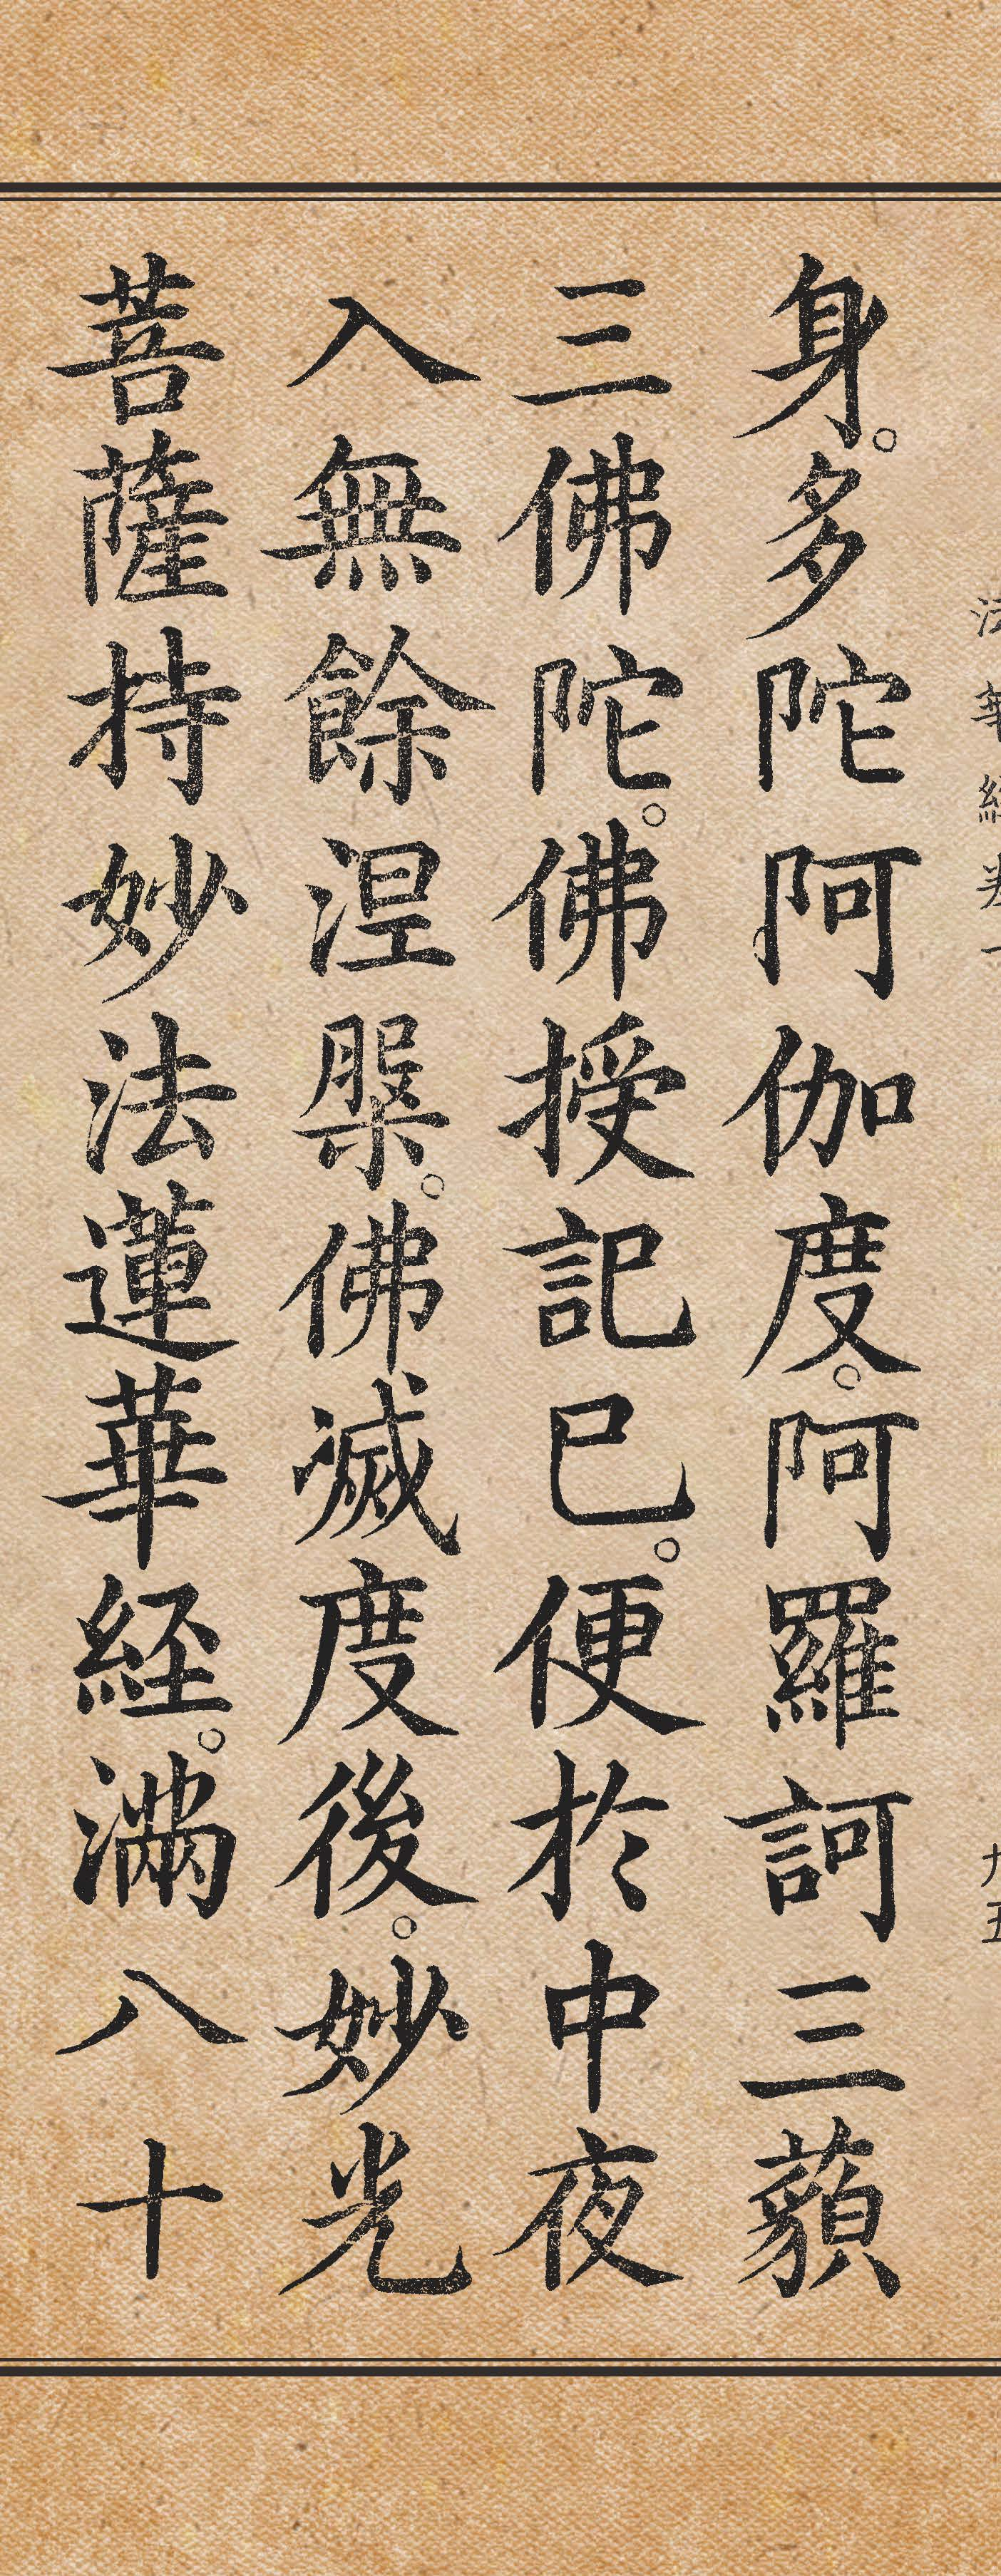 身。多陀阿伽度。阿羅訶三藐
三佛陀。佛授記巳。便於中夜
入無餘涅槃。佛滅度後。妙光
菩薩持妙法蓮華経。滿八十